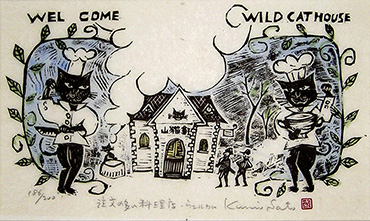 WEL COME
WILD CAT HOUSE
山猫軒
186/200
注文の多い料理店・ウェルカム Kumi Sato